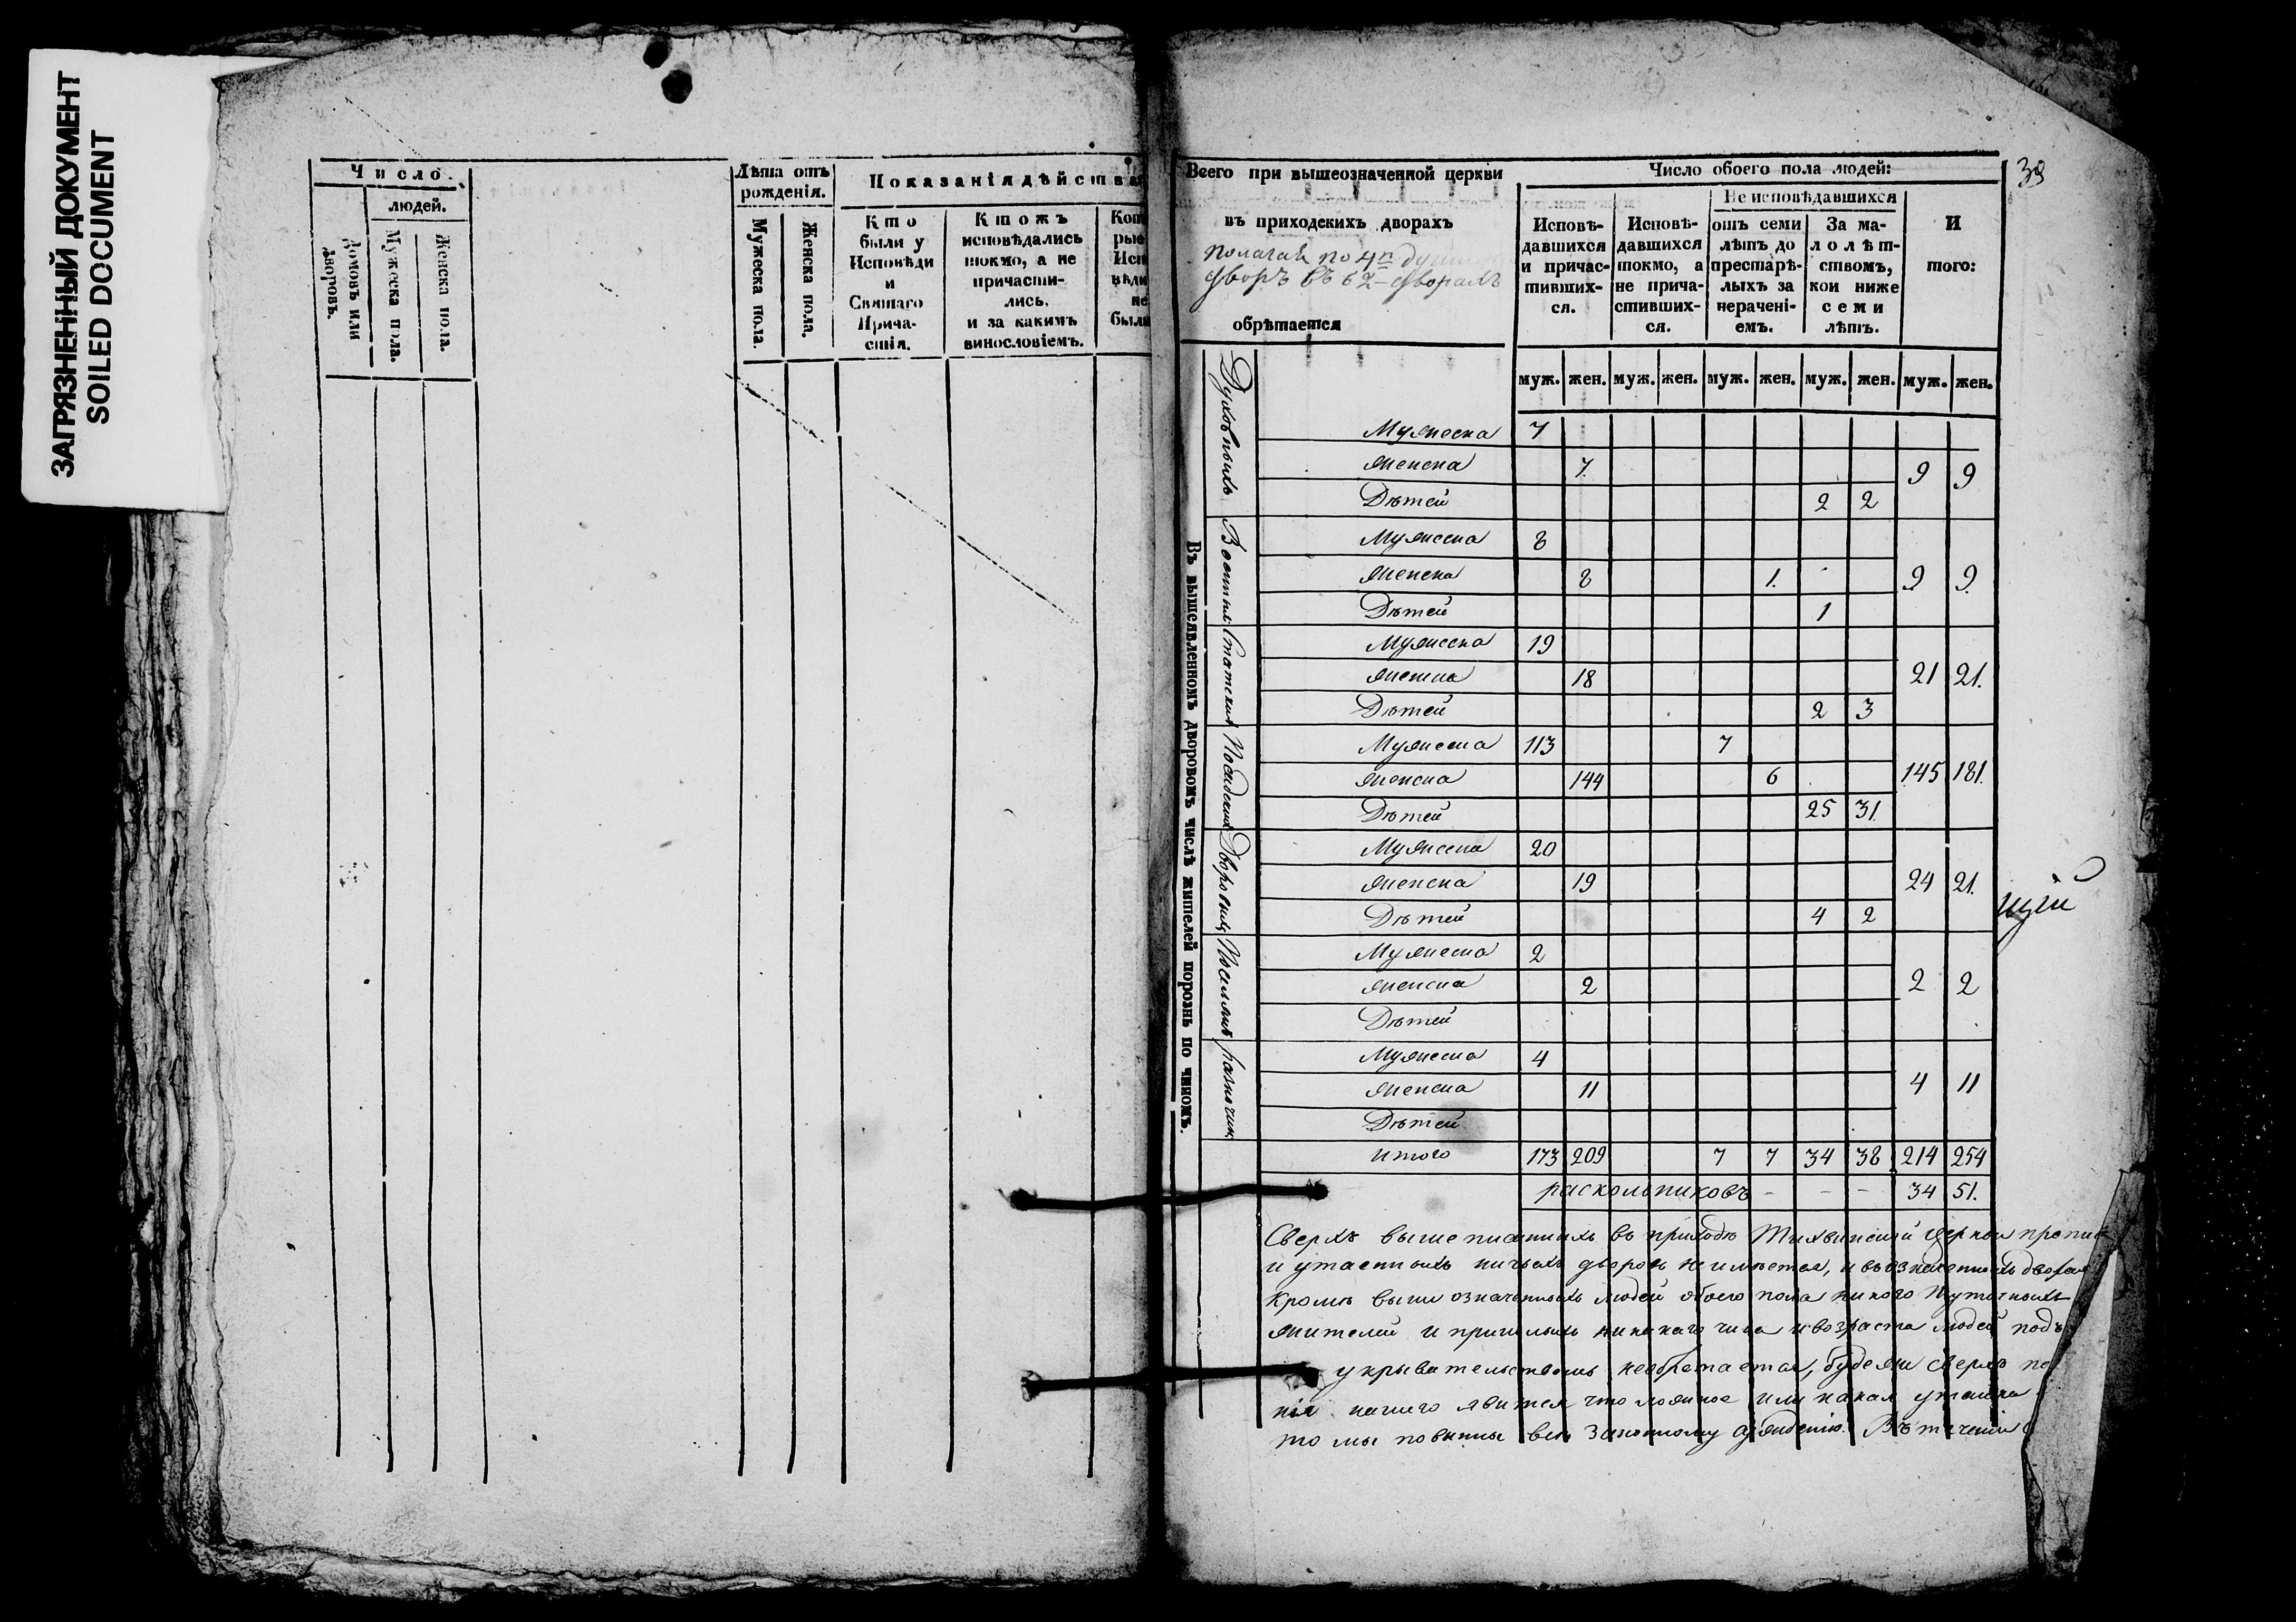 ЗАГРЯЗНЕННЫЙ ДОКУМЕНТ
SOILED DOCUMENT
Число
людей.
Домовъ или дворовъ.
Мужеска пола.
Женска пола.
Лѣта отъ рожденія.
Мужеска пола.
Женска пола.
Показанія дѣйства
Кто были у Исповѣди и Святаго Прича-стія.
Ктожъ исповѣдались токмо, а не причасти-лись, и за какимъ винословіемъ.
Кот
рые
Исп
вѣди
не
были
39
Всего при вышеозначенной церкви
въ приходскихъ дворахъ
полагая по 4 души
дворъ въ 62 дворахъ
обрѣтается
Число обоего пола людей:
Исповѣ-давшихся и причас-тивших-ся.
Исповѣ-давшихся токмо, а не прича-стивших-ся.
Не исповѣдавшихся
отъ семи лѣтъ до престарѣ-лыхъ за нерачені-емъ.
За ма-лолѣт-ствомъ, кои ниже семи лѣтъ.
И того:
муж. жен. муж. жен. муж. жен. муж. жен. муж. жен.
Въ вышеявленномъ дворовомъ числѣ жителей порознь по чиномъ.
Духовныхъ
Мужеска 7
Женска 7 9 9
Дѣтей 2 2
Военныхъ
Мужеска 8
Женска 8 1. 9 9.
Дѣтей 1
Статскихъ
Мужеска 19
Женска 18 21 21.
Дѣтей 2 3
Посадскихъ
Мужеска 113 7
Женска 144 6 145 181.
Дѣтей 25 31.
Дворовыхъ
Мужеска 20
Женска 19 24 21.
Дѣтей 4 2
щій
Поселянъ
Мужеска 2
Женска 2 2 2
Дѣтей
разночин
Мужеска 4
Женска 11 4 11
Дѣтей
Итого 173 209 7 7 34 38 214 254
раскольниковъ - - - 34 51.
Сверхъ вышеписанныхъ въ приходѣ Тихвинской церкви пропис
и утаенныхъ ничьихъ дворовъ неимѣется, и въ означенныхъ дворах
кромѣ выше означенныхъ людей обоего пола никого
жителей и пришлыхъ никакаго чина и возраста людей подъ
укрывательствомъ необрѣтается, буде же сверхъ по
нія нашего явится что ложное или какая утайка
то мы повинны всѣ законному сужденію. Въ теченіи